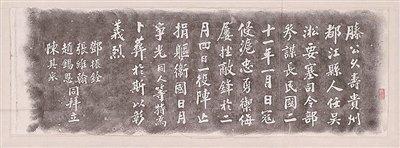 滕公久壽貴州
都江縣人任吳
淞要塞司令部
參謀長民國二
十一年一月日寇
侵滬忠勇禦侮
屢挫敵鋒於二
月四日一役陣亡
捐軀衛國日月
寧光同人等揹為
卜葬於斯以彰
義烈
鄧振銓
張維翰
趙錫恩同拜立
陳其采